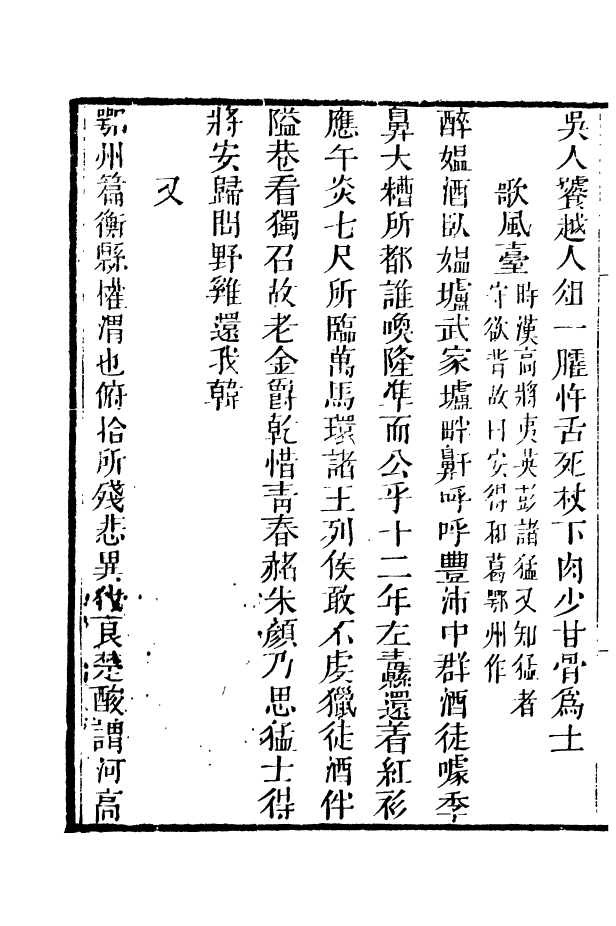 吳人饕越人俎一臛忤舌死杖下肉少甘骨爲士
歌風臺
時漢高將夷英彭諸猛又知猛者
守欲背故曰安得和葛鄂州作
醉媼酒臥媼壚武家壚畔鼾呼呼豐沛中群酒徒噱季
鼻大糟所都誰喚隆準而公乎十二年左纛還着紅衫
應午炎七尺所臨萬馬環諸王列侯敢不虔獵徒酒伴
隘巷看獨召故老金爵乾惜靑春赭朱顏乃思猛士得
將安歸問野雞還我韓
又
鄂州篇衡縣權渭也俯拾所殘悲異代良楚酸謂河高